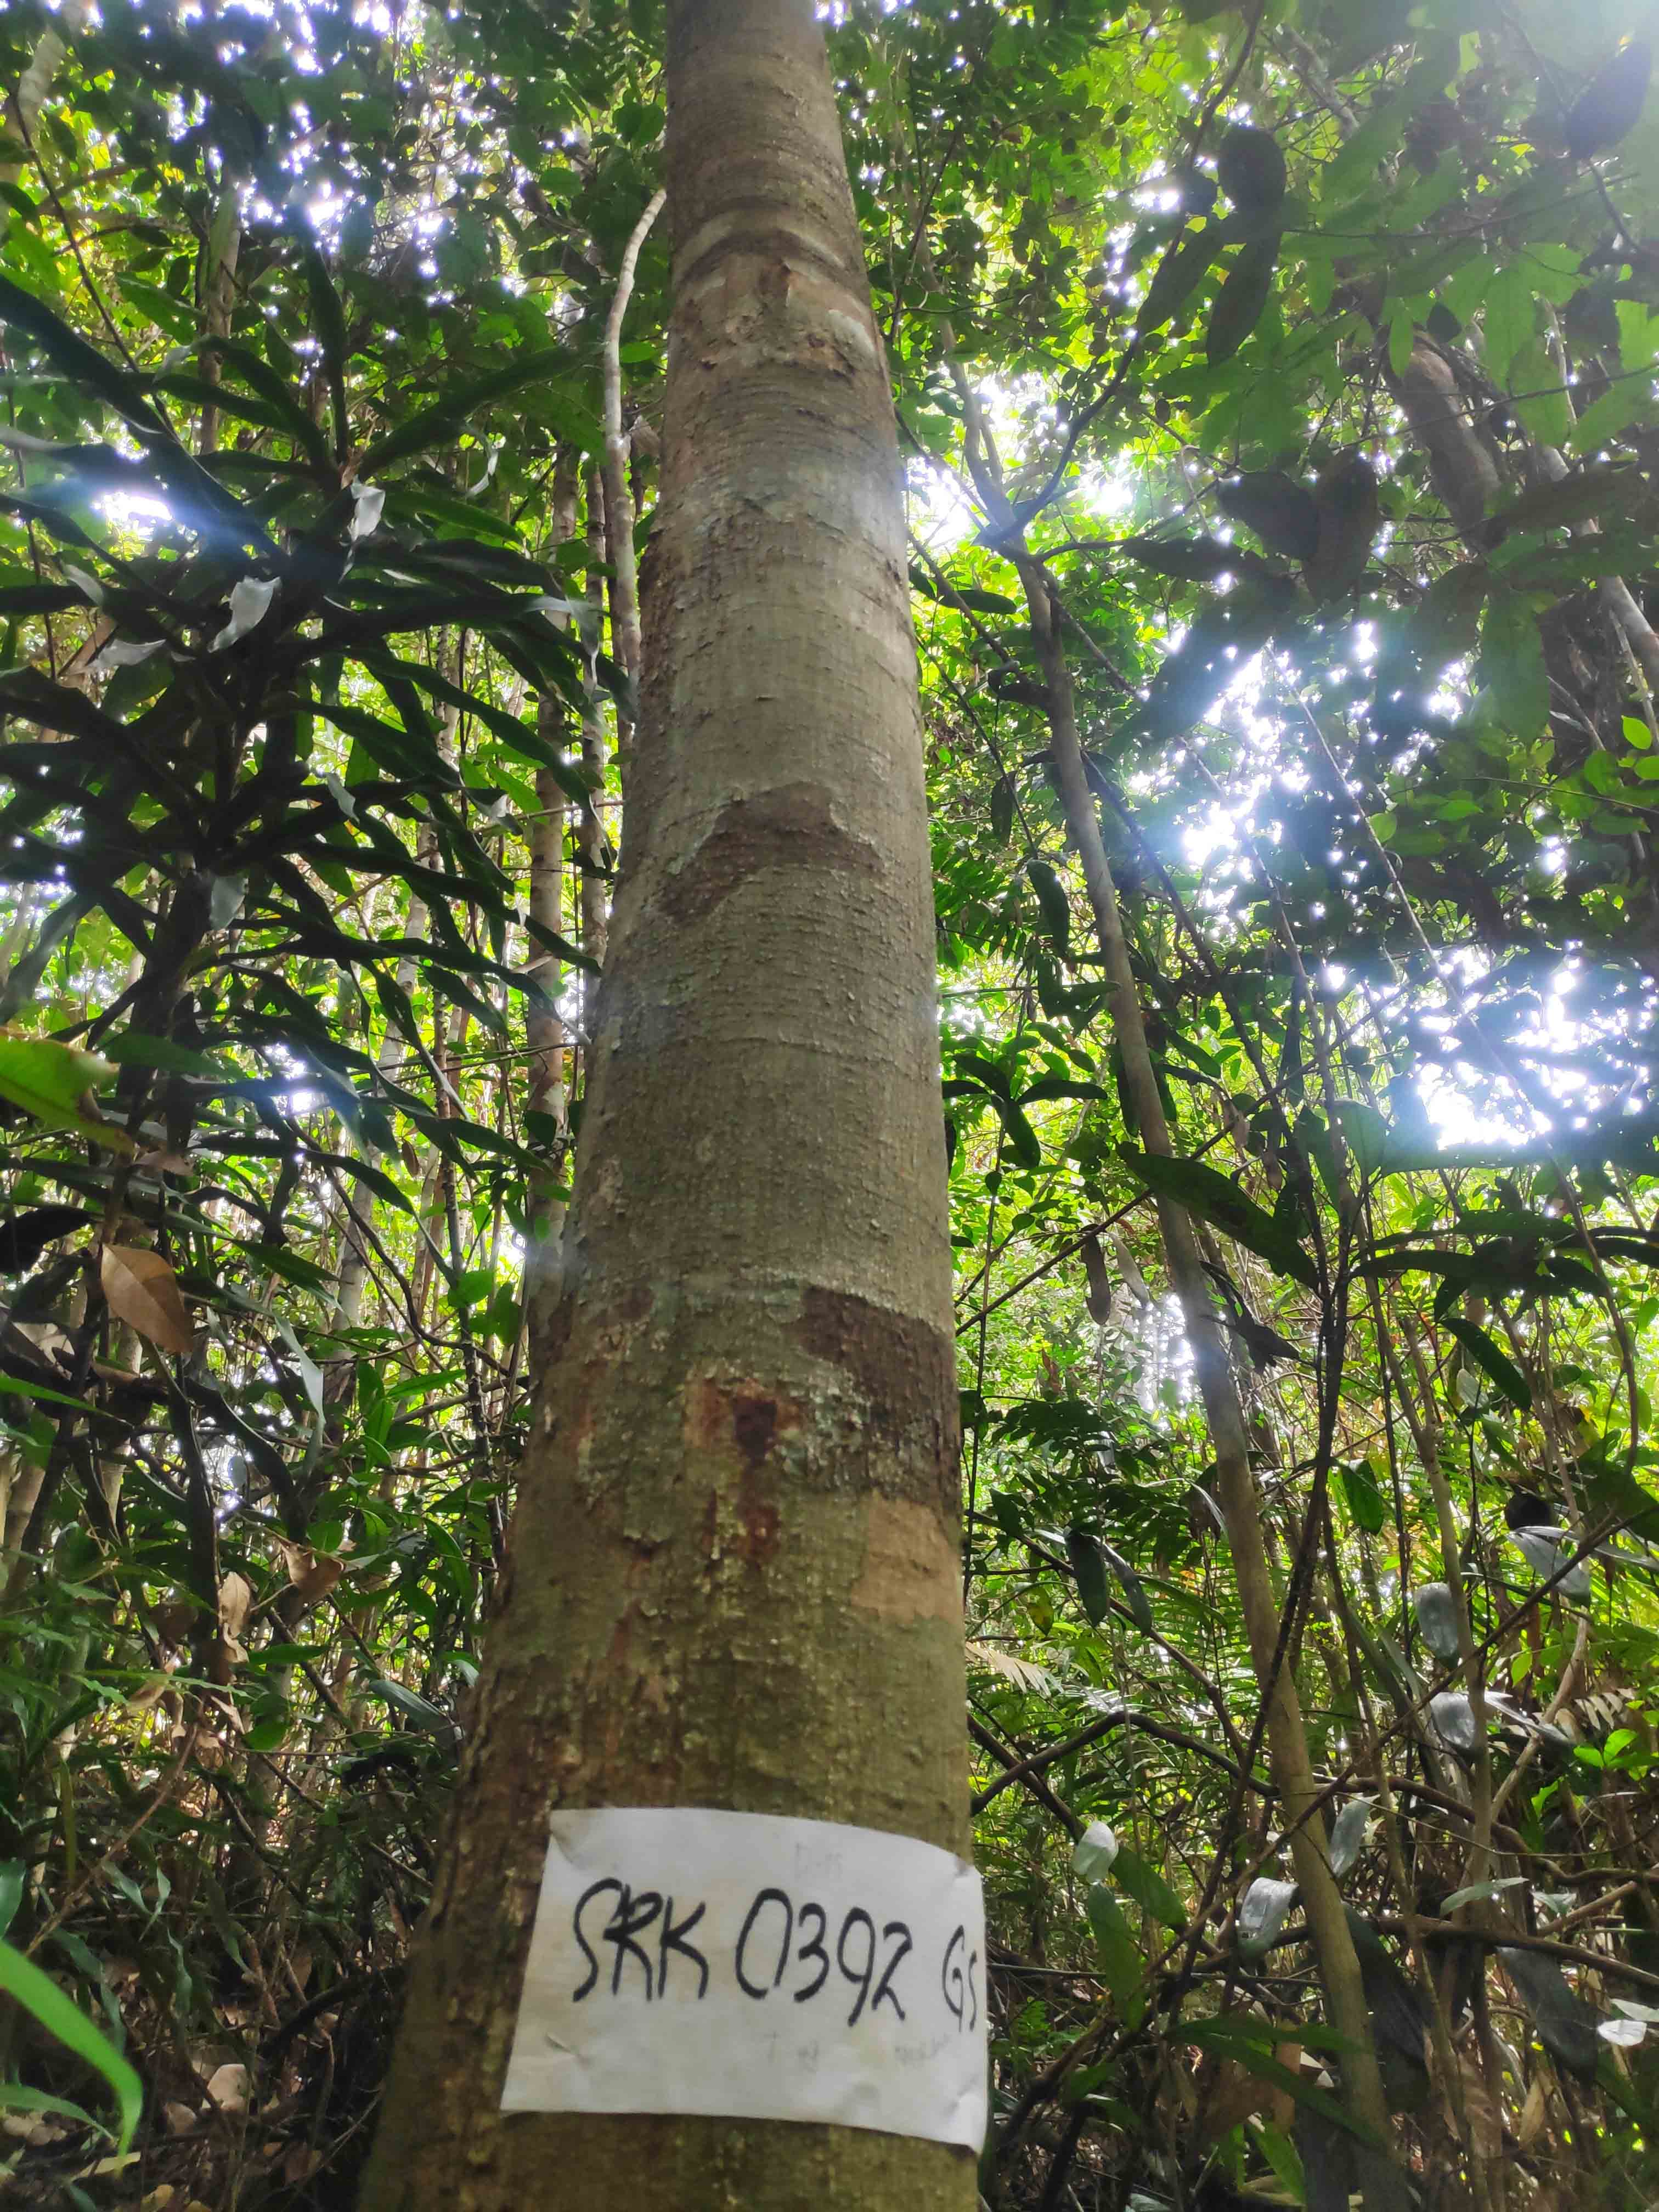 SRK 0392 GS